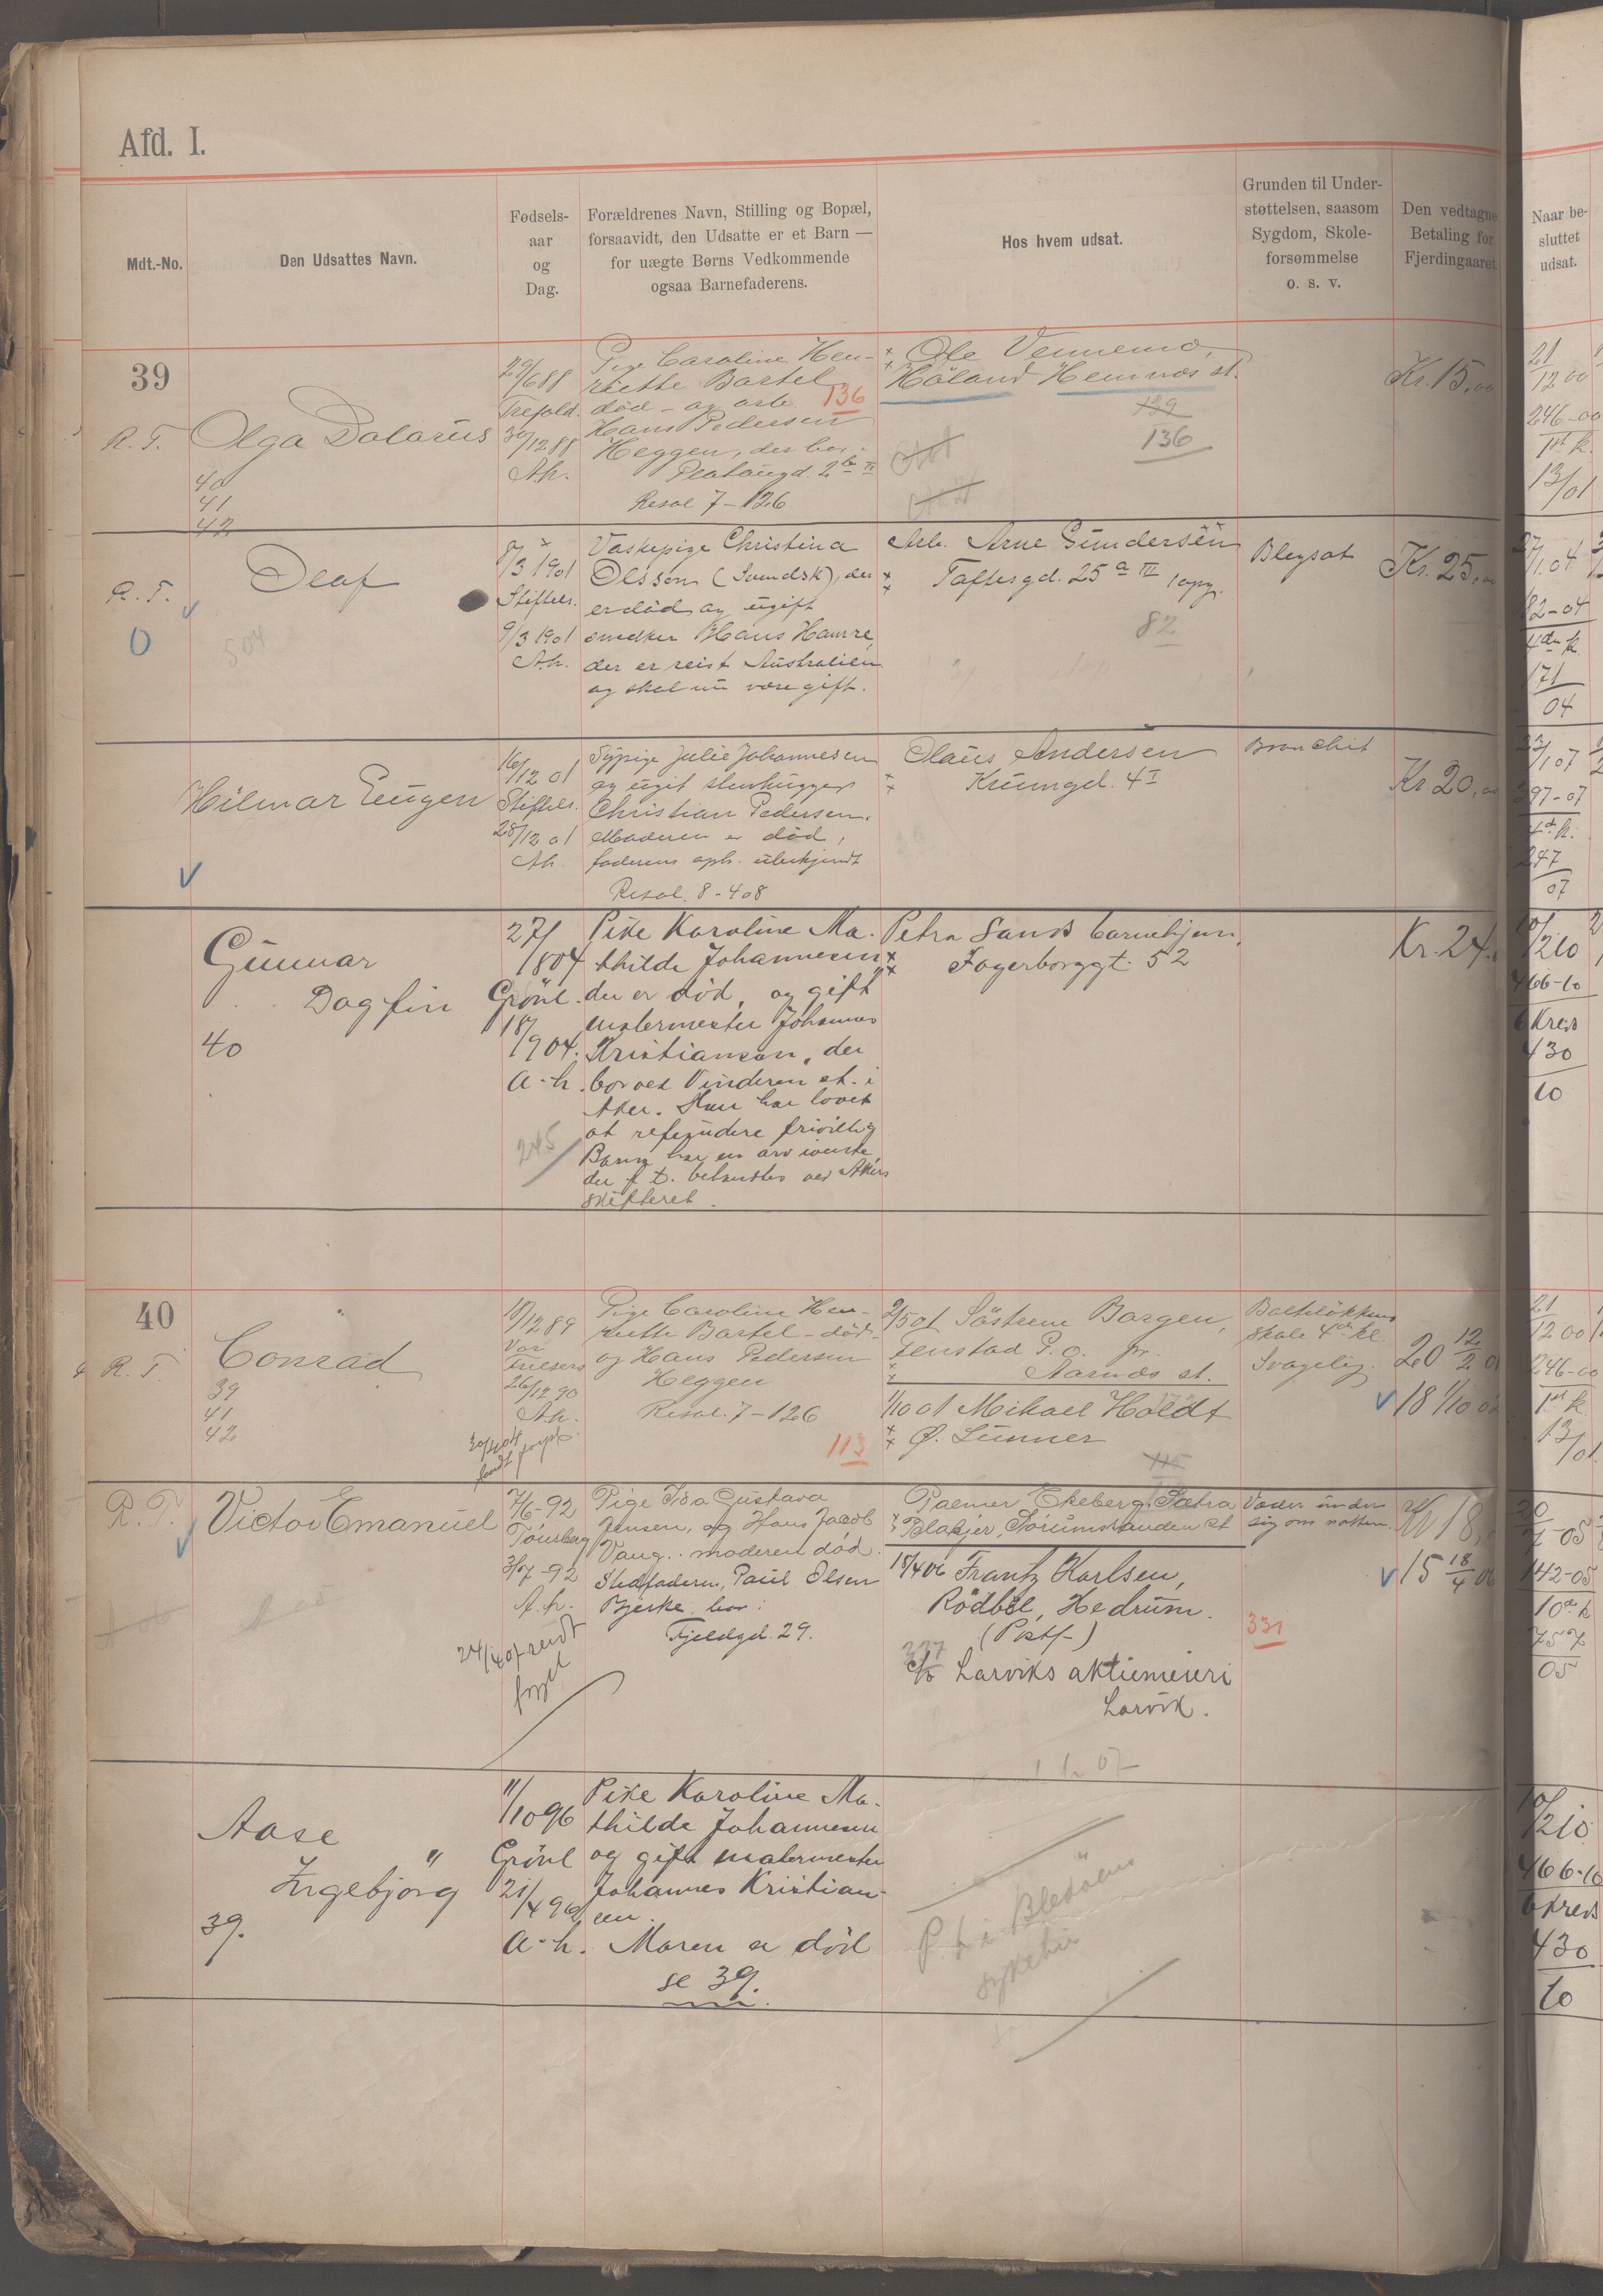 Afd. I.
Mdt.-No.
Den Udsattes Navn.
Fødsels-
aar
og
Dag.
Forældrenes Navn, Stilling og Bopæl,
forsaavidt, den Udsatte er et Barn —
for uægte Børns Vedkommende
ogsaa Barnefaderens.
Hos hvem udsat.
Grunden til Under-
støttelsen, saasom
Sygdom, Skole-
forsømmelse
o. s. v.
Den vedtagne
Betaling for
Fjerdingaaret.
Naar be-
sluttet
udsat.
39
R. T. Olga Dolorus
40
41
42
29/6 88
Trefold.
30/12 88
A.h.
Pige Caroline Hen-
riette Bastel
død - og arb. 136
Hans Pedersen
Heggen, der bor:
2 b II
Resol 7-126
Ole Vennemo,
Höland Hemnæs st.
139
136
Kr. 15,00
21
12 00
246-00
1st k.
13/01
R. T. Olaf
0
504
8/3 1901
Stiftels.
9/3 1901
A.h.
Vaskepige Christina
Olsson (Svendsk), der
er død og ugift
snedker Hans Hamre,
der er reist Australien
og skal nu være gift.
Arb. Arne Gundersen
Toftesgd. 25 a III opg.
82
Blegsot
Kr. 25,00
27/1.04
82-04
4de k
171
04
Hilmar Eugen
16/12 01
Stiftels.
28/12 01
A.h.
Sypige Julie Johannesen
og ugift stenhugger
Christian Pedersen.
Moderen er død,
faderens oph. ubekjendt
Resol. 8-408
Olaus Andersen
Krumgd. 4 I
Bronchit
Kr. 20,00
23/1 07
397-07
4de k.
247
07
Gunnar
Dagfin
40
27/1 04
Grönl.
18/9 04.
a-h.
245
Pike Karoline Ma-
thilde Johannesen
der er död, og gift
malermester Johannes
Kristiansen, der
bor ved Vinderen st. i
Aker. Han har lovet
at refundere frivillig
Barn har en arv ivente
der f. t. behandles ved Akers
skifteret.
Petra Sands barnehjem,
Fagerborggt. 52
Kr. 24.
10/2 10
466-10
6 Kreds
430
10
40
R. T. Conrad
39
41
42
18/12 89
Vor
Frelsers
26/12 90
A.h.
Pige Caroline Hen-
riette Bastel - död -
og Hans Pedersen
Heggen
Resol. 7-126
113
2/5 01 Söstrene Borgen,
Fenstad P. o. pr.
Aarnæs st.
1/10 01 Mikael Holdt
Ø. Lunner
115
Bolteløkkens
skole 4de kl
Svagelig.
20 12/2 01
18 1/10 01
21
12 00
246-00
1st k
13/01
R. T. Victor Emanuel
7/6-92
Tönsberg
3/7-92
A.h.
Pige Ida Gustava
Jensen, og Hans Jacob
Vang. moderen död.
Stedfaderen, Paul Olsen
Bjerke bor:
Fjeldgd. 29.
Palmer Ekeberg, Sætra
Blakjer, Sörumsanden st
18/4 06 Frantz Karlsen,
Rödböl, Hedrum.
(Postf.)
337
c/o Larviks aktiemeieri
Larvik.
1/1 07
Væder under
sig om natten
331
Kr 18,
15 18/4 06
20
05
142-05
10de k
757
05
Aase
Ingebjörg
39.
11/10 96
Grönl
21/4 96
a-h.
Pike Karoline Ma-
thilde Johannesen
og gift malermester
Johannes Kristian-
sen.
Moren er död
se 39.
P. t. i Bleföens
sykehus
10/2 10
466-10
6 kreds
430
10